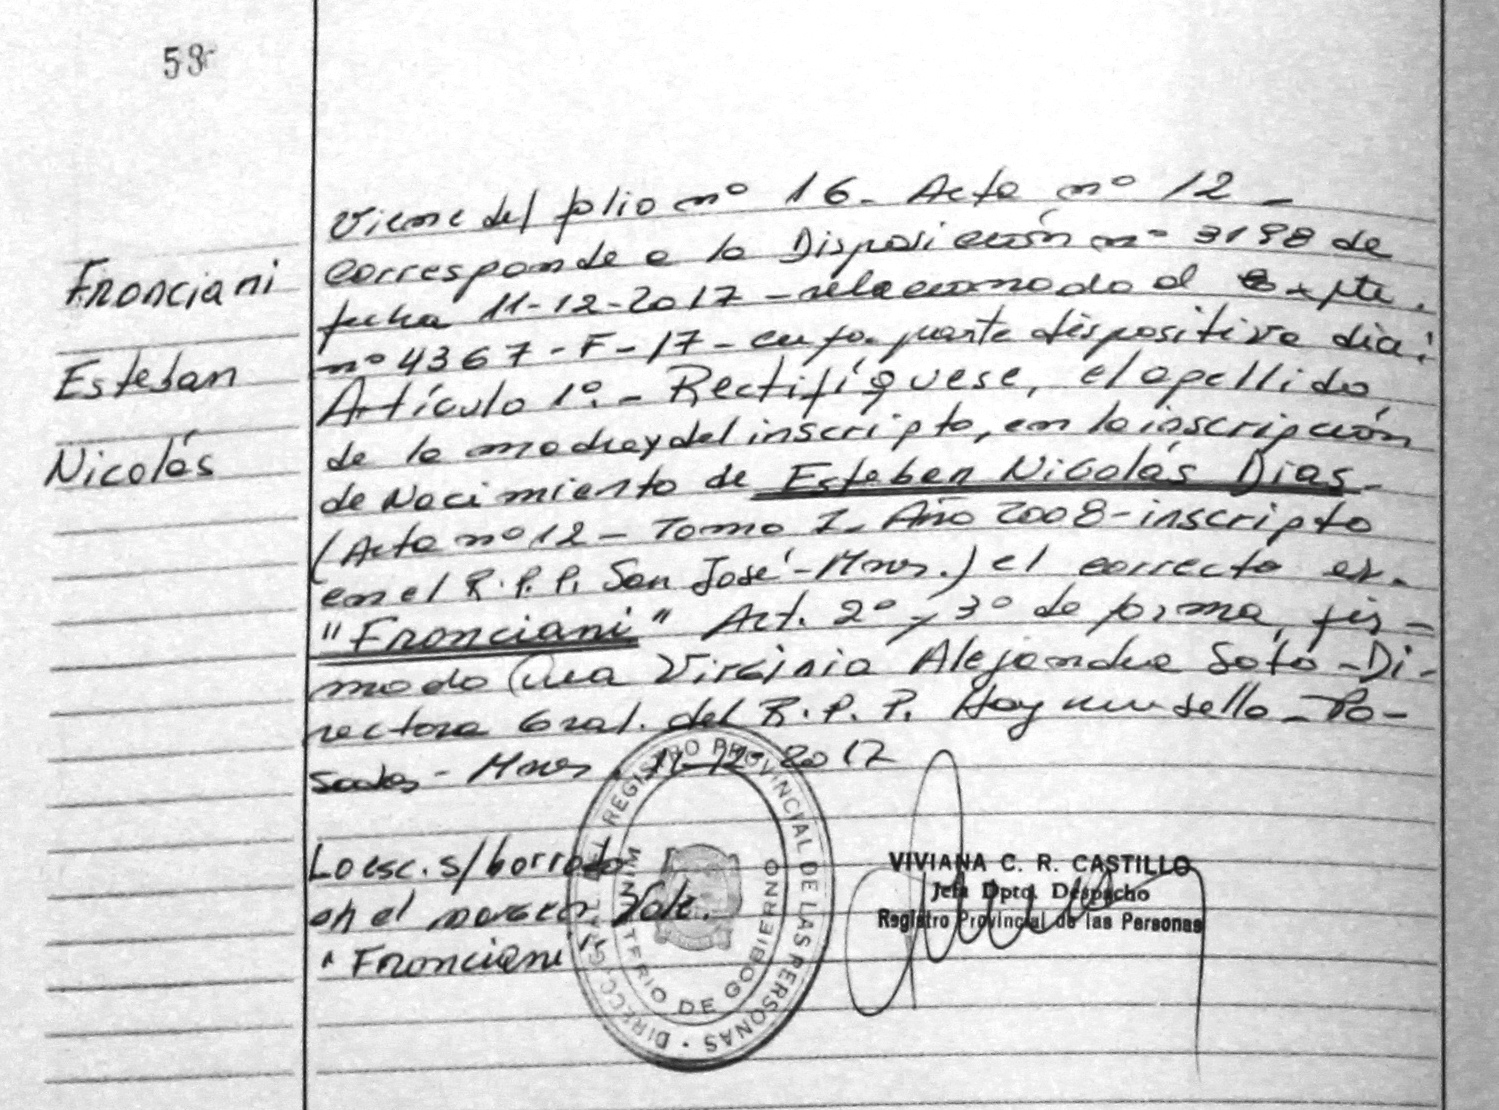 53
Franciani
Esteban
Nicolás
Viene del folio nº 16- Acta nº 12 -
corresponde a la Disposición nº 3198 de
fecha 11-12-2017 - relacionado al Expte.
nº 4367-F-17- cuya parte dispositiva dice:
Artículo 1º.- Rectifíquese, el apellido
de la madre y del inscripto, en la inscripción
de Nacimiento de Esteban Nicolás Dias-
(Acta nº 12 - Tomo I- Año 2008-inscripto
en el R.P.P. San José-Mnes.) el correcto es-
"Franciani" Art. 2º y 3º de forma, fir-
mado Dra Virginia Alejandra Soto -Di-
rectora Gral. del R.P.P. Hay un sello - Po-
sadas- Mnes. 11-12-2017
Lo esc. s/ borrado
en el margen Vale.
"Franciani"
DIRECC. GRAL. DEL REGISTRO PROVINCIAL DE LAS PERSONAS
MINISTERIO DE GOBIERNO
VIVIANA C. R. CASTILLO
Jefa Dpto. Despacho
Registro Provincial de las Personas